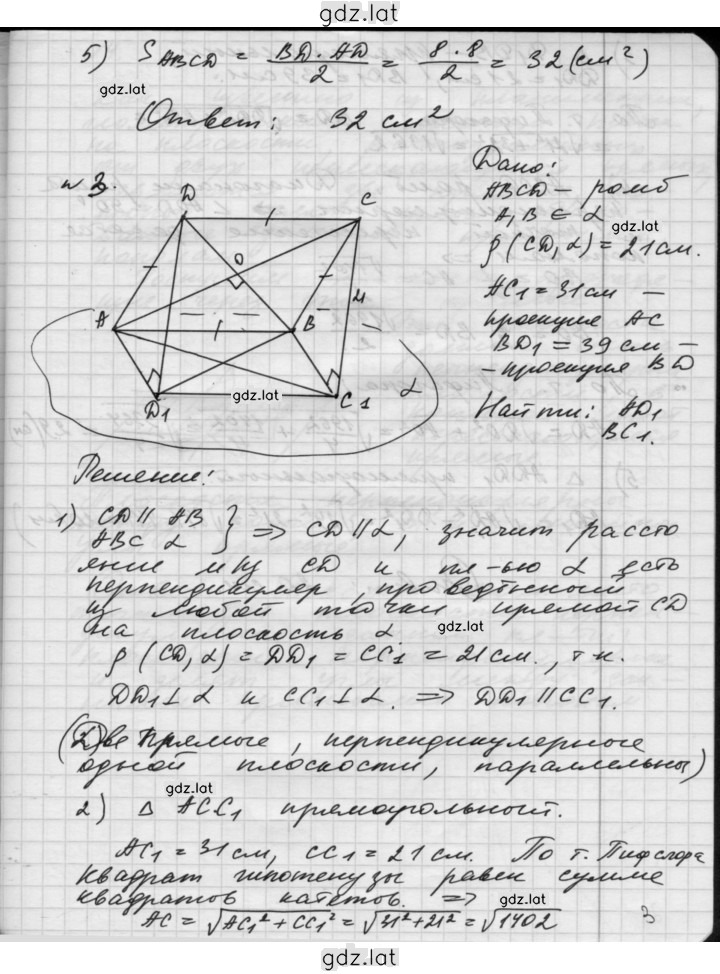 gdz.lat
5) S ABCD = BD·AD/2 = 8·8/2 = 32 (см²)
gdz.lat
Ответ: 32 см²
Дано:
N 3.
ABCD – ромб
A, B ∈ α
gdz.lat
ρ(CD, α) = 21 см.
AC1 = 31 см –
проекция AC
BD1 = 39 см –
– проекция BD
Найти: AD1
BC1.
D C
O
A B
м
D1 gdz.lat C1 α
Решение:
1) CD ∥ AB
ABC α } => CD ∥ α, значит рассто
яние м/у CD и пл-ью α есть
перпендикуляр, проведённый
из любой точки прямой CD
на плоскость α gdz.lat
ρ(CD, α) = DD1 = CC1 = 21 см., т.к.
DD1 ⊥ α и CC1 ⊥ α. => DD1 ∥ CC1.
(Две прямые, перпендикулярные
одной плоскости, параллельны)
gdz.lat
2) Δ ACC1 прямоугольный.
AC1 = 31 см, CC1 = 21 см. По т. Пифагора
квадрат гипотенузы равен сумме
квадратов катетов. => gdz.lat
AC = √AC1² + CC1² = √31² + 21² = √1402
3
gdz.lat